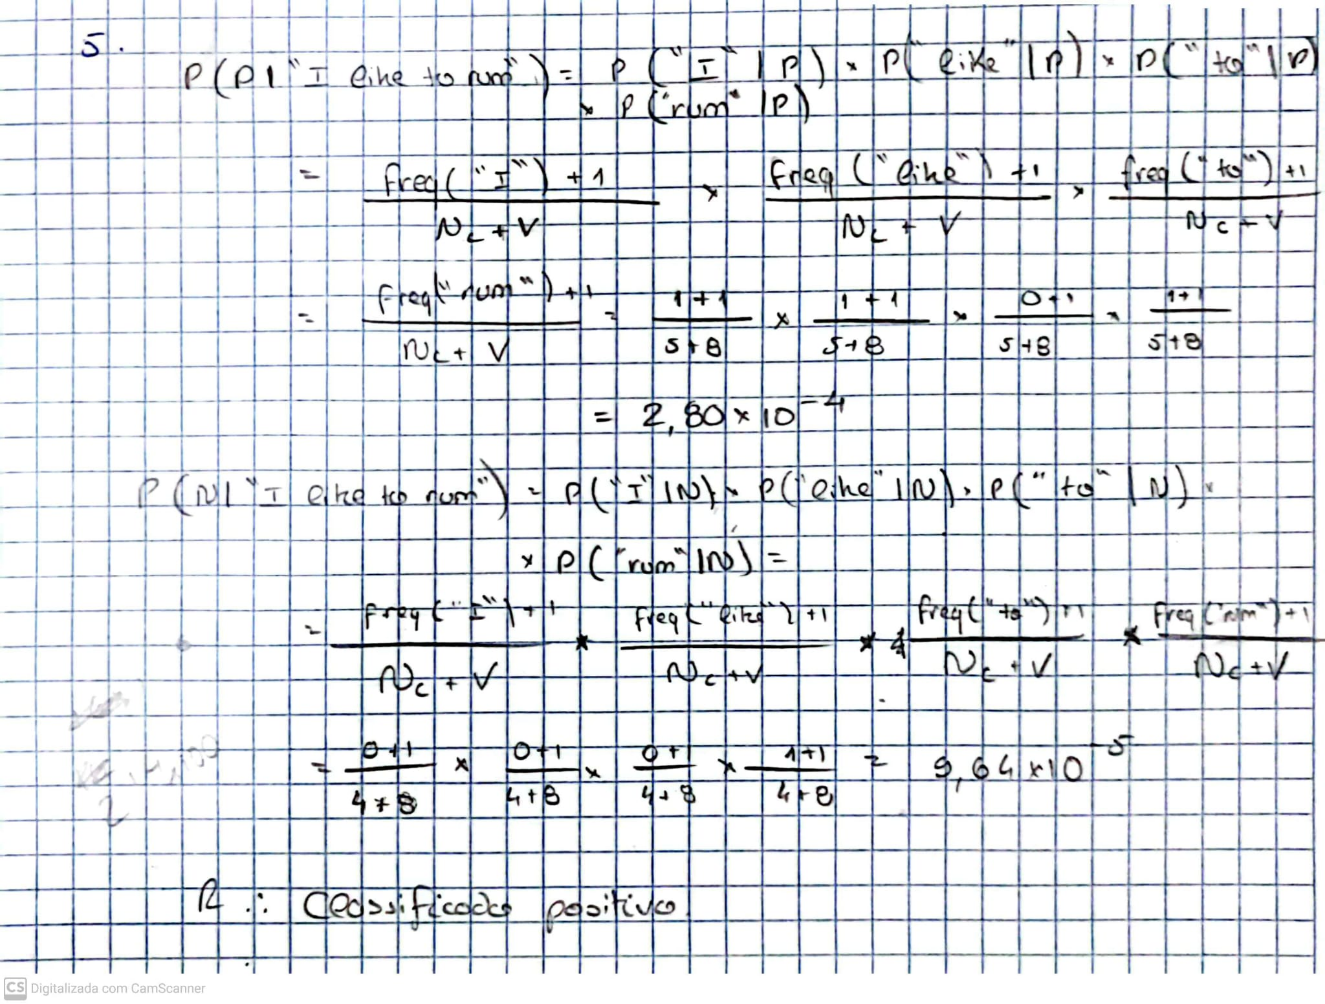 5.
P(P|"I like to run") = P("I" | P) × P("like" | P) × P("to" | P)
× P("run" | P)
= freq("I") + 1 / Nc + V × freq("like") + 1 / Nc + V × freq("to") + 1 / Nc + V
= freq("run") + 1 / Nc + V = 1+1 / 5+8 × 1+1 / 5+8 × 0+1 / 5+8 × 1+1 / 5+8
= 2,80 × 10^-4
P(N|"I like to run") = P("I"|N) × P("like"|N) × P("to"|N) ×
× P("run"|N) =
= freq("I") + 1 / Nc + V × freq("like") + 1 / Nc + V × freq("to") + 1 / Nc + V × freq("run") + 1 / Nc + V
= 0+1 / 4+8 × 0+1 / 4+8 × 0+1 / 4+8 × 1+1 / 4+8 = 9,64 × 10^-5
R ∴ Classificado positivo.
CS Digitalizada com CamScanner